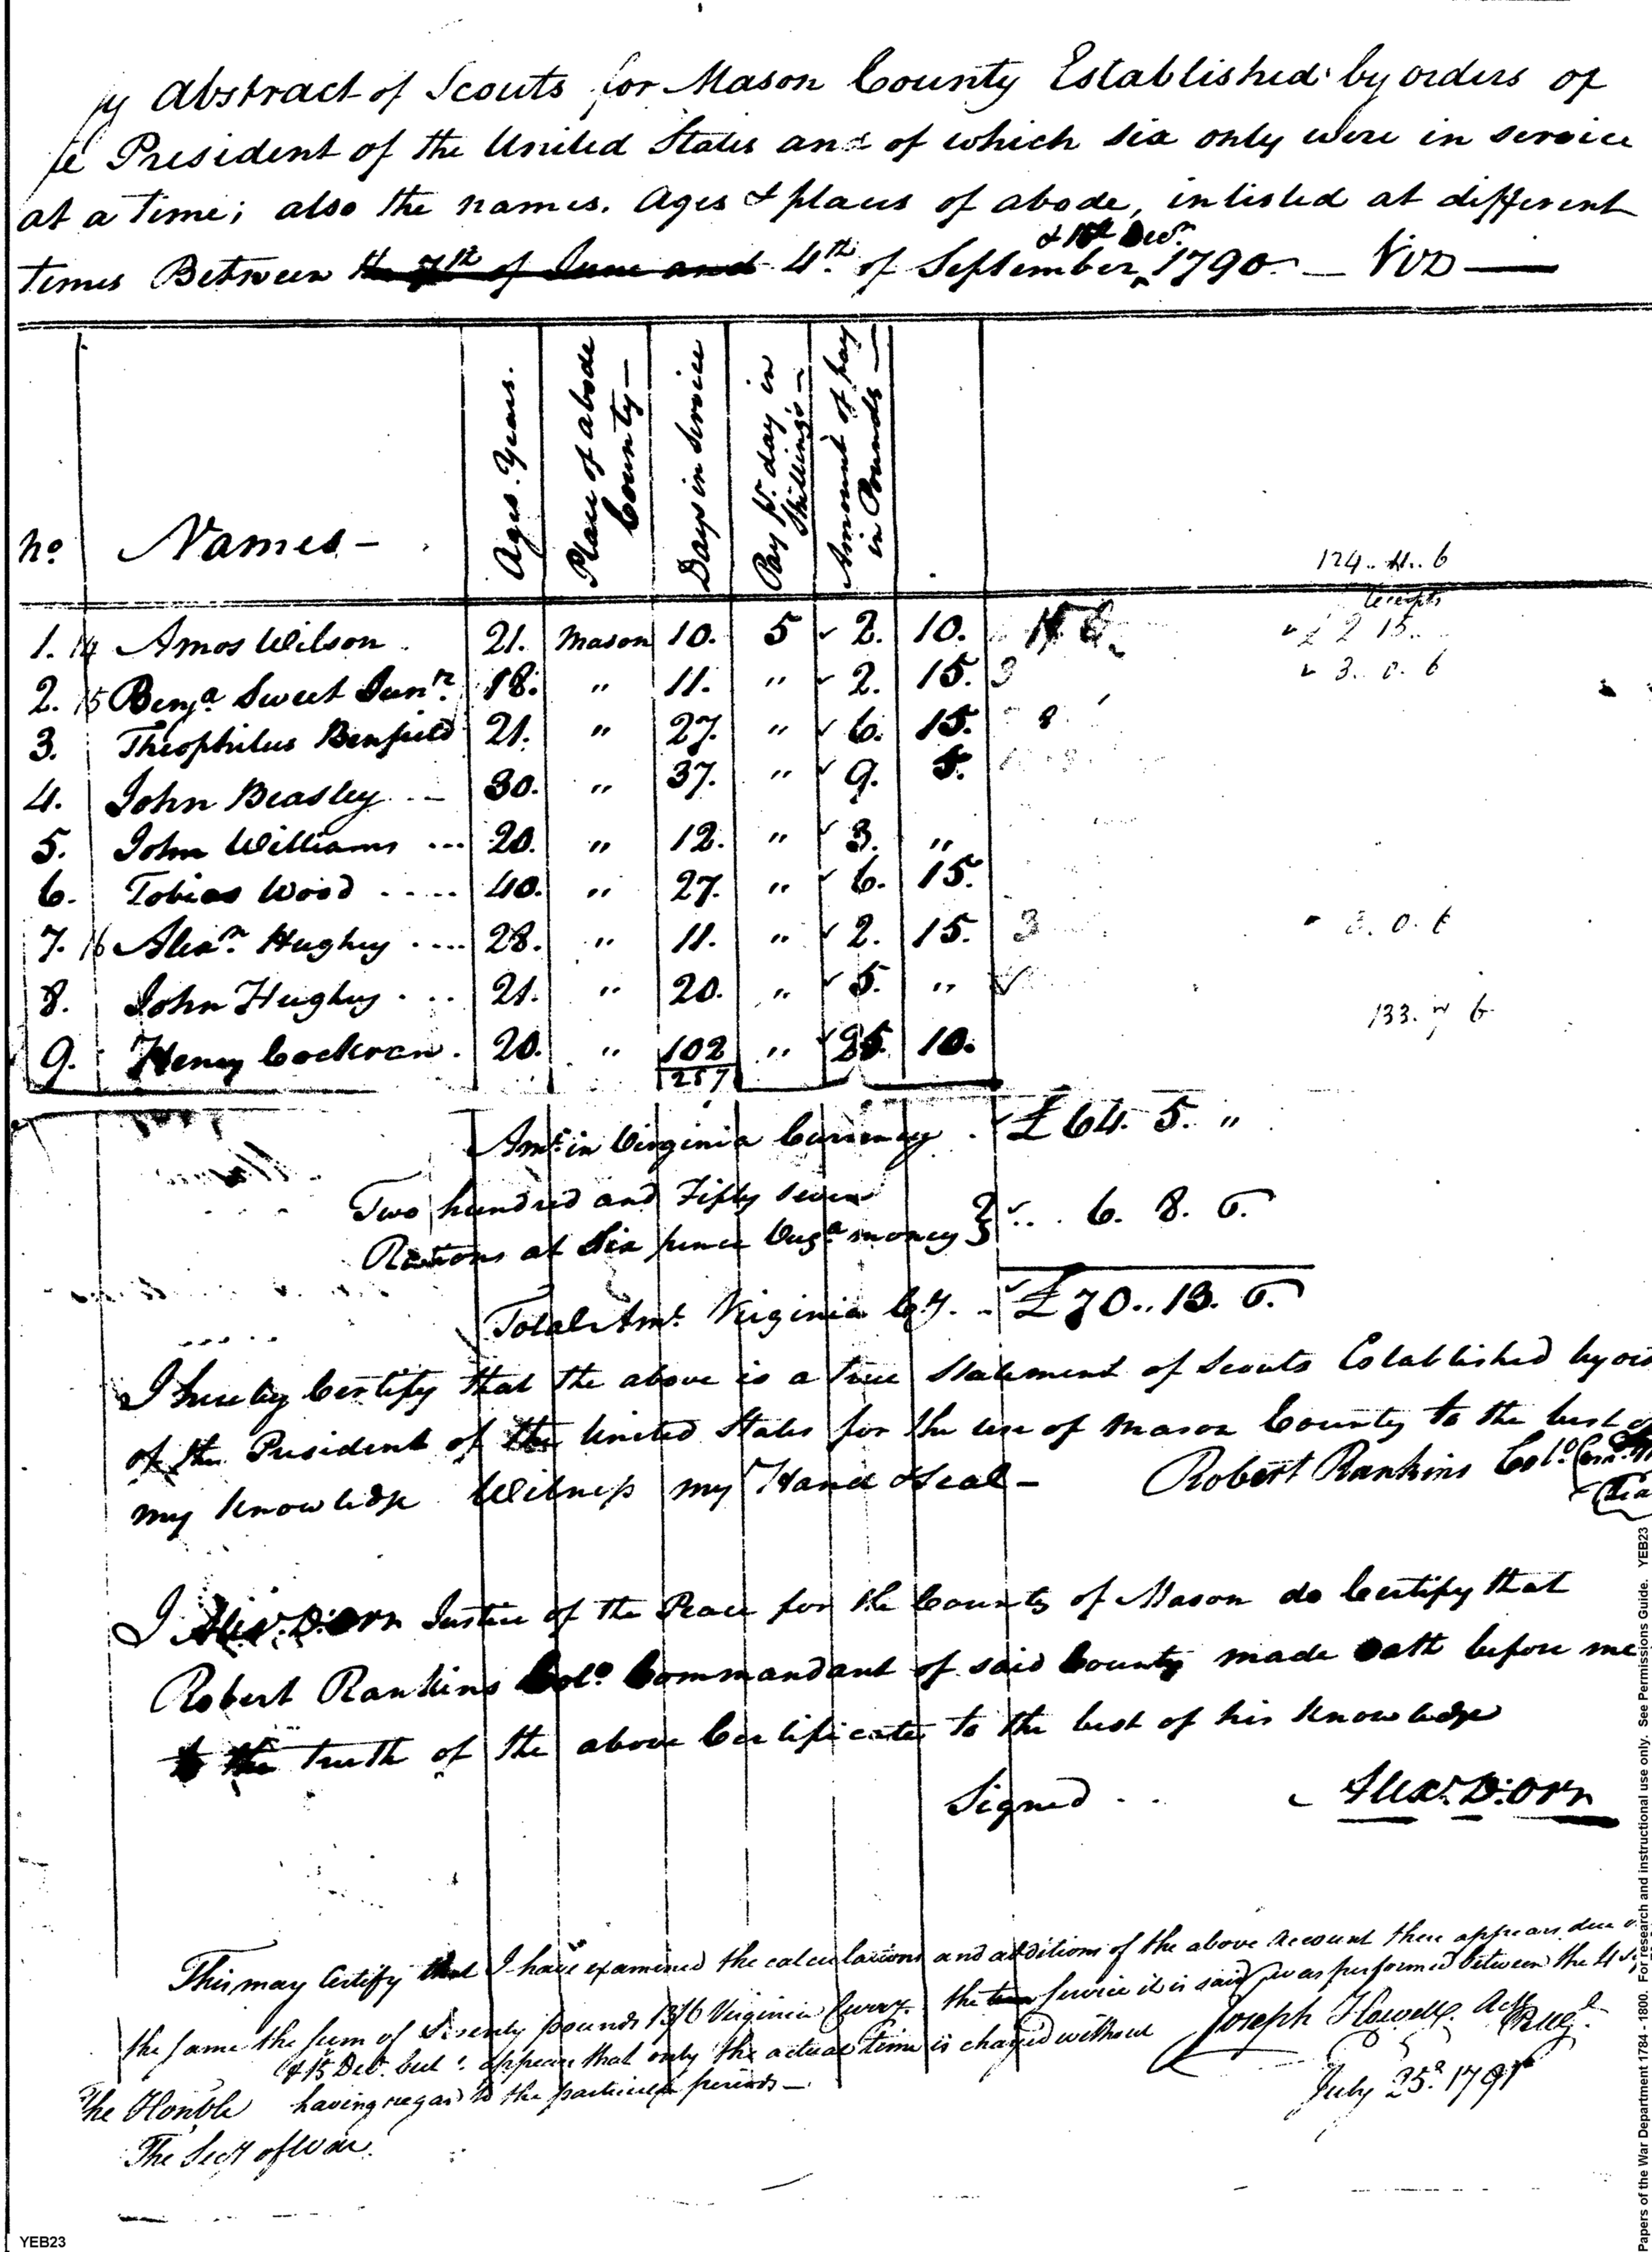 Pay Abstract of Scouts for Mason County Established by orders of
the President of the United States and of which six only were in service
at a time; also the names. Ages & places of abode, inlisted at different
& 15th Decr.
times Between the 7th of June and 4th of September, 1790. — Viz —
No. Names — Ages. Years. Place of abode County — Days in Service Pay pr. day in Shillings — Amount of pay in Pounds —
124.. 4.. 6
receipts
1. 14 Amos Wilson . 21. Mason 10. 5 2. 10. £ 2 15..
2. 15 Benja. Sweet Junr. 18. " 11. " 2. 15. 3 3. 0. 6
3. Theophilus Benfield 21. " 27. " 6. 15. 8
4. John Beasley .. — 30. " 37. " 9. 5.
5. John Williams ... 20. " 12. " 3. "
6. Tobias Wood ..... 40. " 27. " 6. 15.
7. 16 Alexr. Hughey .... 28. " 11. " 2. 15. 3 3. 0. 6
8. John Hughey . .. 21. " 20. " 5. "
133. 6
9. Henry Cockran . 20. " 102 " 25. 10.
257
Amt. in Virginia Currency . £64. 5. "
Two hundred and Fifty seven
Rations at Six pence Virga. money } .. . 6. 8. 6.
Total Amt. Virginia Cy. .. £70.. 13. 6.
I hereby Certify that the above is a true Statement of Scouts Established by
of the President of the United States for the use of Mason County to the best of
my knowledge Witness my Hand & Seal — Robert Rankins Colo.
I Alexr. D. Orr Justice of the Peace for the County of Mason do Certify that
Robert Rankins Colo. Commandant of said County made oath before me
to the truth of the above Certificate to the best of his Knowledge
Signed .. Alexr. D. Orr
This may Certify that I have examined the calculations and additions of the above Account there appears due
the same the sum of Seventy pounds 13/6 Virginia Curry. the service it is said was performed between the 4
& 15 Decr. but appears that only the actual time is charged without
having regard to the particular periods —
Joseph Howell Actg
July 25d. 1791
The Honble
The Secy of War.
YEB23
Papers of the War Department 1784 - 1800. For research and instructional use only. See Permissions Guide. YEB23